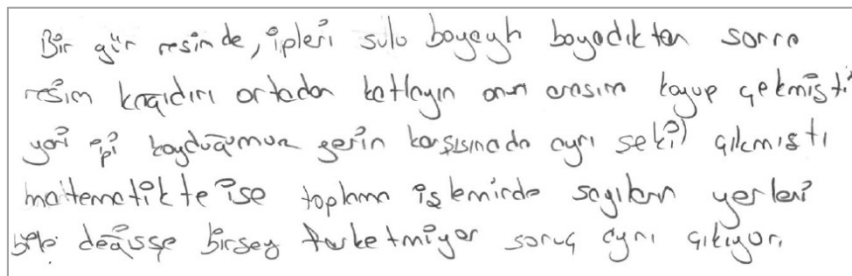 Bir gün resimde, ipleri sulu boyayla boyadıktan sonra
resim kağıdını ortadan katlayıp onun arasına koyup çekmiştik
yani ipi koyduğumuz yerin karşısınada aynı şekil çıkmıştı
matematikte ise toplama işleminde sayıların yerleri
bile değişse birşey farketmiyor sonuç aynı çıkıyor.